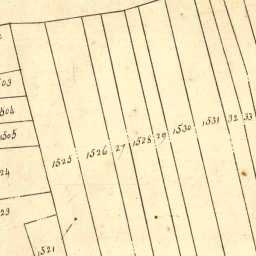 03
504
505
1525 1526 27 1528 29 1530 1531 32 33
24
23
1521